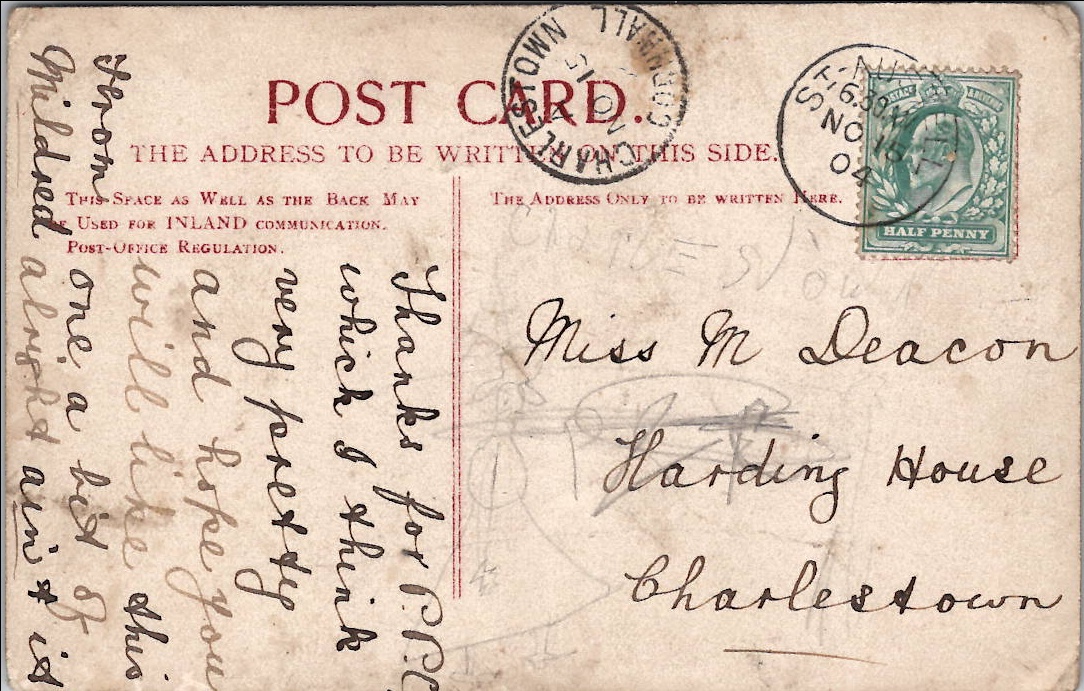 POST CARD.
THE ADDRESS TO BE WRITTEN ON THIS SIDE.
THIS SPACE AS WELL AS THE BACK MAY
BE USED FOR INLAND COMMUNICATION.
POST-OFFICE REGULATION.
THE ADDRESS ONLY TO BE WRITTEN HERE.
CHARLESTOWN
CORNWALL
NO 15
04
ST-AUSTELL
6.30
NO 15
04
POSTAGE
HALF PENNY
Miss M Deacon
Harding House
Charlestown
Thanks for P.P.C
which I think
very pretty
and hope you
will like this
one a bit of
alright ain't it
From
Mildred